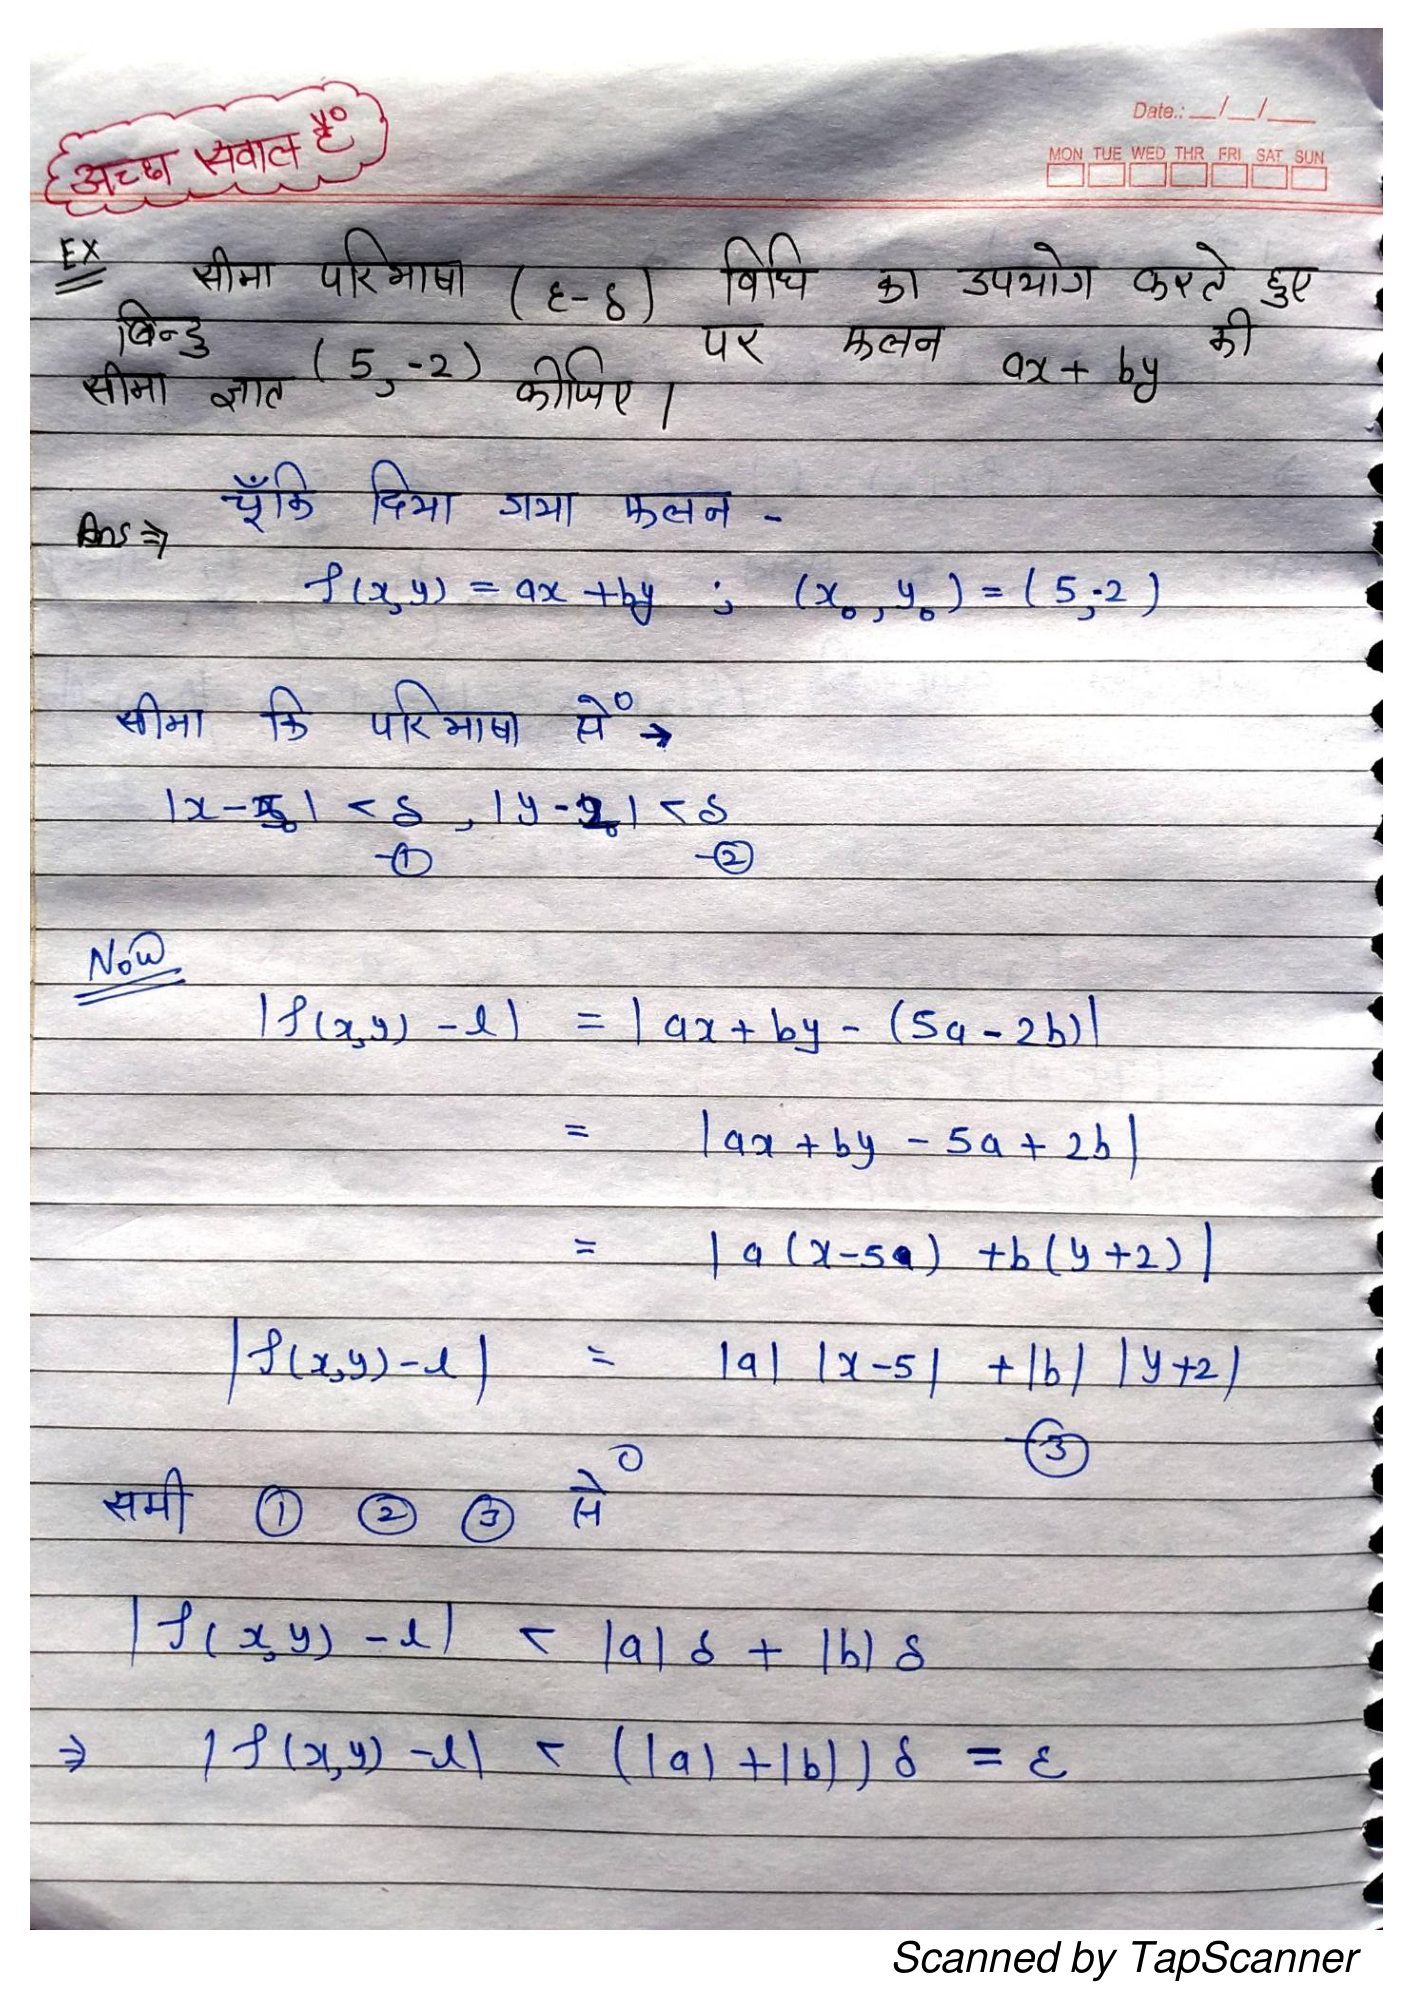 अच्छा सवाल है°
Date.: __/__/___
MON TUE WED THR FRI SAT SUN
EX सीमा परिभाषा (ε-δ) विधि का उपयोग करते हुए
बिन्दु (5,-2) पर फलन ax + by की
सीमा ज्ञात कीजिए।
Ans ⇒ चूँकि दिया गया फलन -
f(x,y) = ax + by ; (x₀, y₀) = (5,-2)
सीमा कि परिभाषा से° →
|x-x₀| < δ , |y-y₀| < δ
-① -②
Now
|f(x,y) - l| = |ax + by - (5a - 2b)|
= |ax + by - 5a + 2b|
= |a(x-5) + b(y+2)|
|f(x,y)-l| = |a| |x-5| + |b| |y+2|
-③
समी ① ② ③ से°
|f(x,y) - l| < |a| δ + |b| δ
⇒ |f(x,y) - l| < (|a| + |b|) δ = ε
Scanned by TapScanner